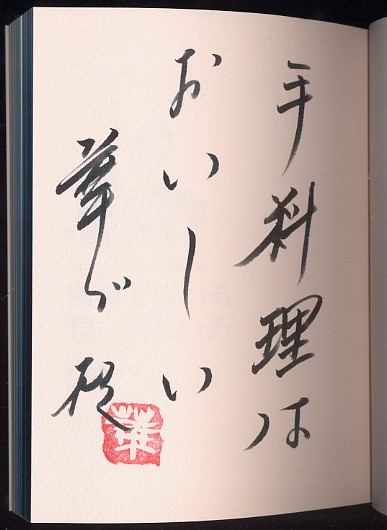 手料理は
おいしい
華